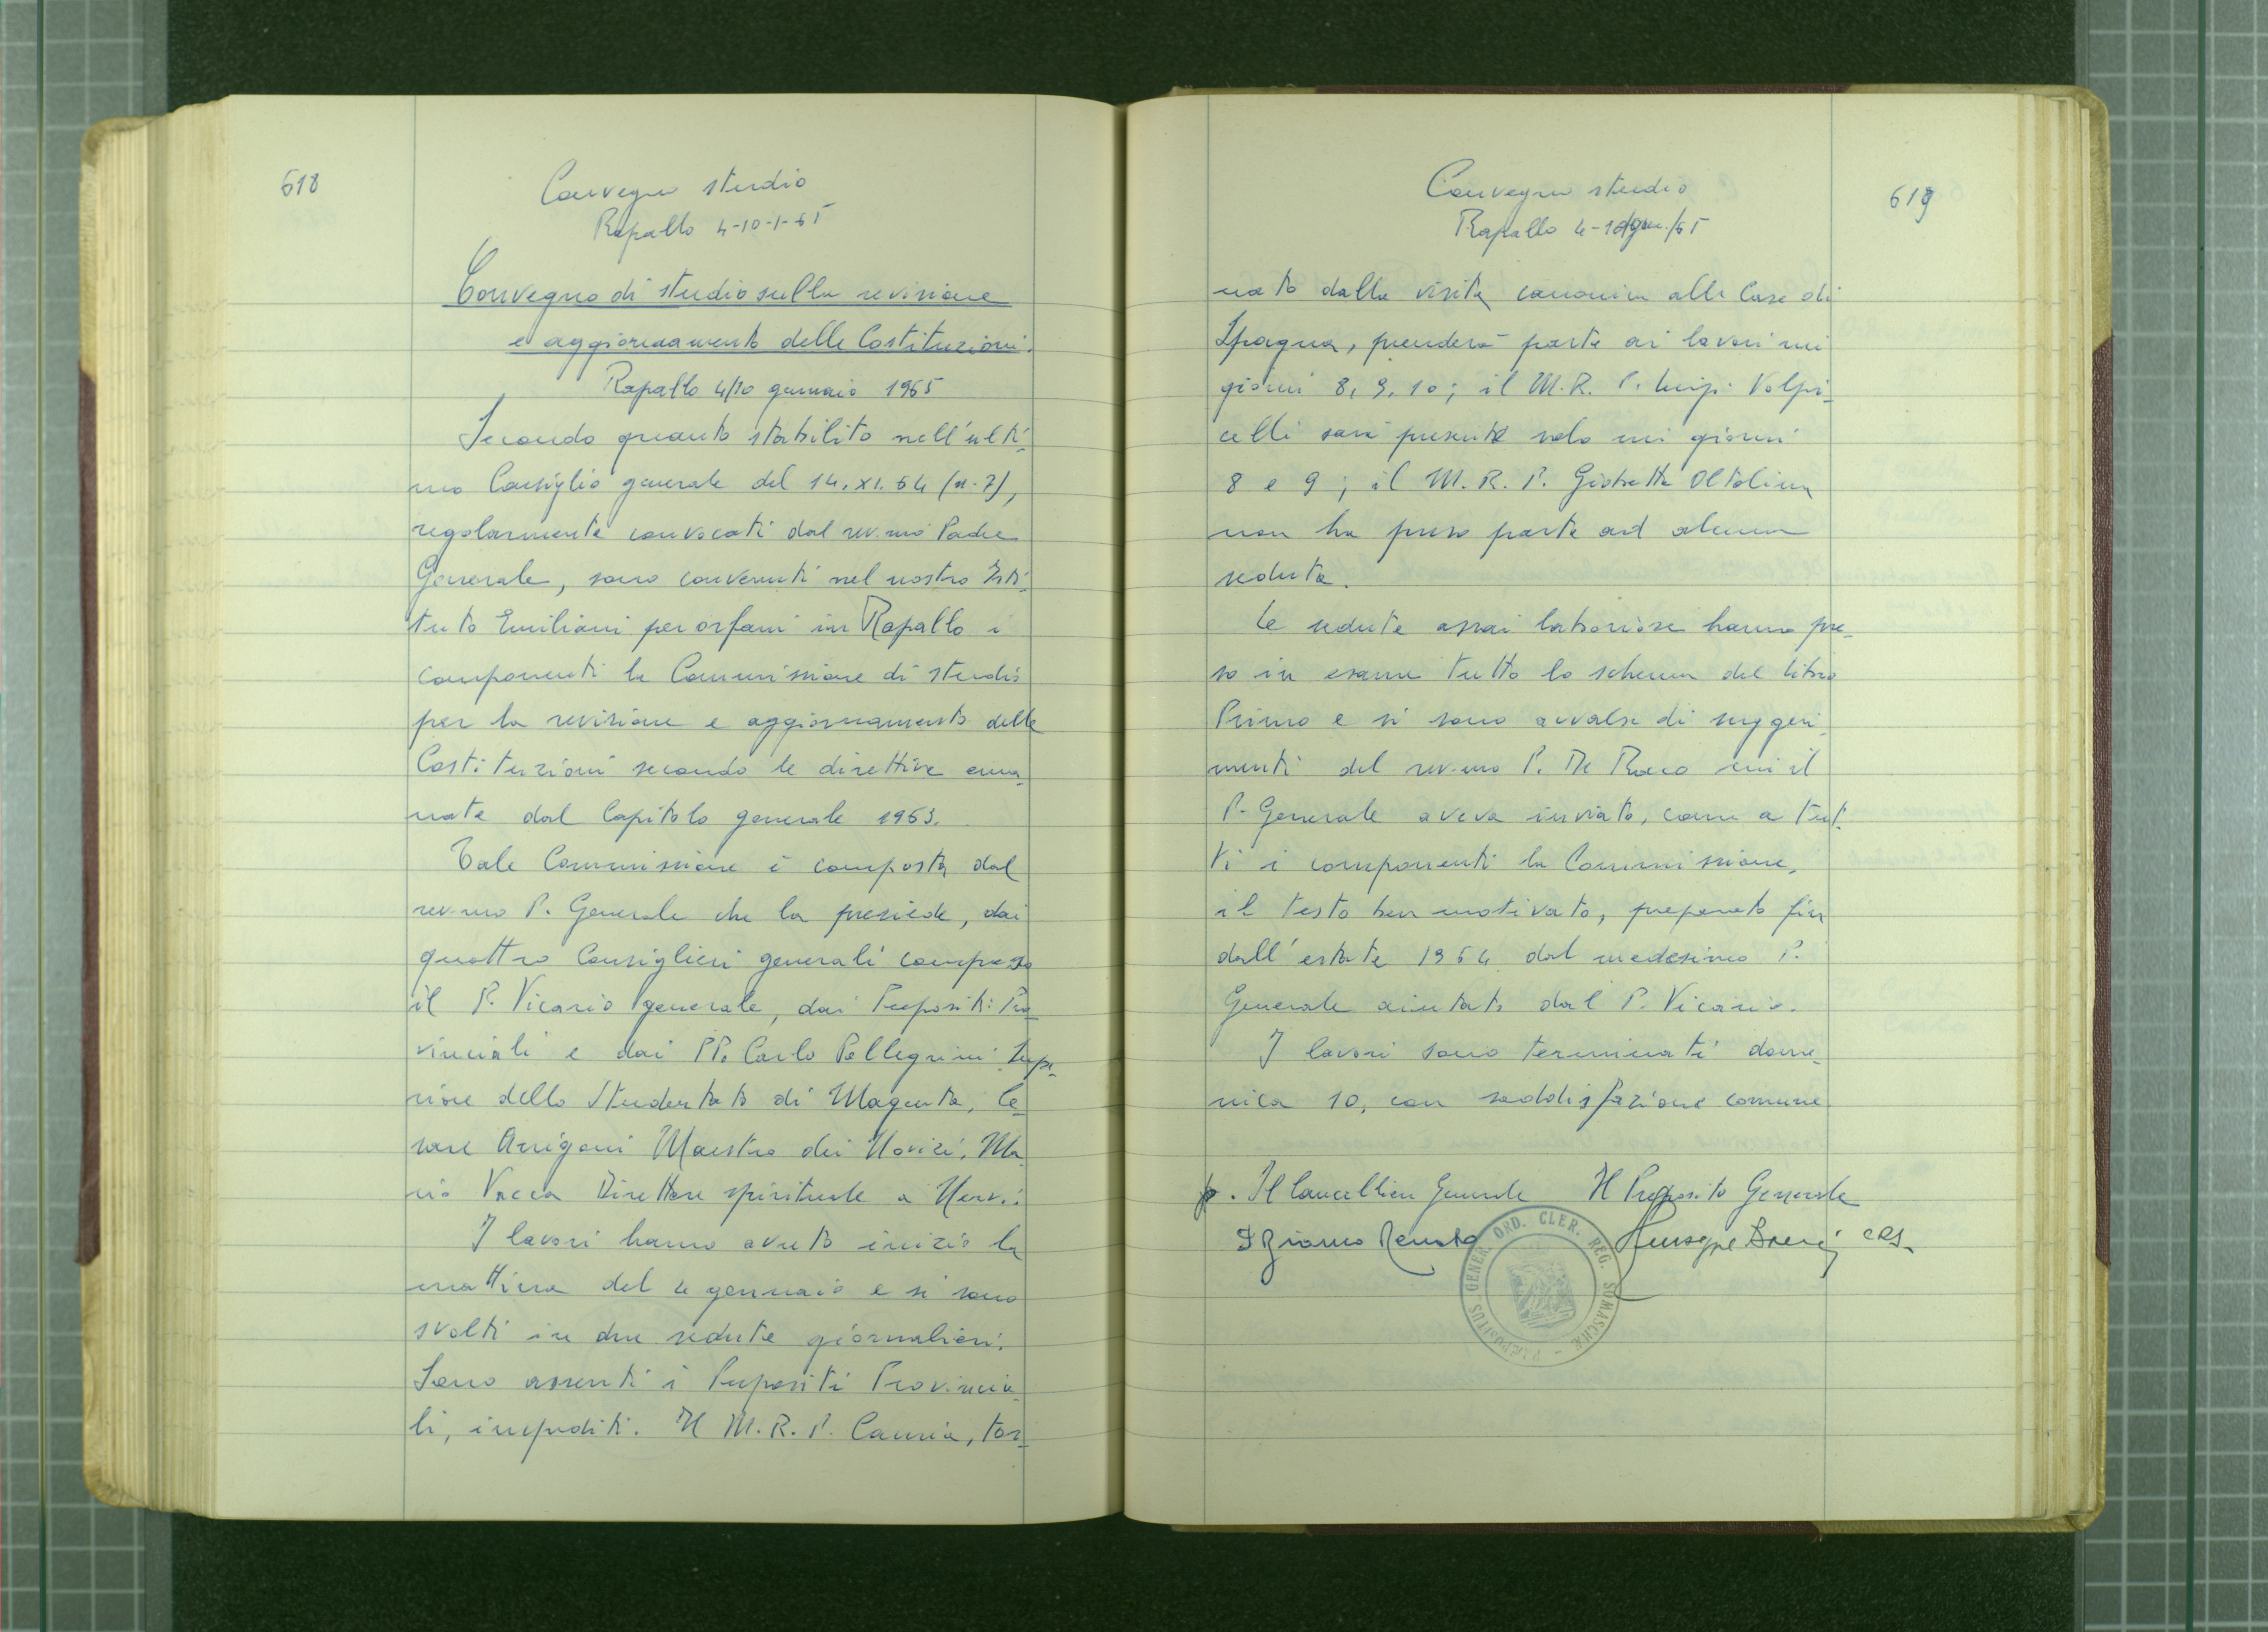 618
Convegno studio
Rapallo 4-10-1-65
Convegno di studio sulla revisione
e aggiornamento delle Costituzioni.
Rapallo 4/10 gennaio 1965
Secondo quanto stabilito nell'ulti-
mo Consiglio generale del 14.XI.64 (n. 7),
regolarmente convocati dal rev.mo Padre
Generale, sono convenuti nel nostro Isti-
tuto Emiliani per orfani in Rapallo i
componenti la Commissione di studio
per la revisione e aggiornamento delle
Costituzioni secondo le direttive ema-
nate dal Capitolo generale 1963.
Tale Commissione è composta dal
rev.mo P. Generale che la presiede, dai
quattro Consiglieri generali compreso
il P. Vicario generale, dai Prepositi Pro-
vinciali e dai PP. Carlo Pellegrini Supe-
riore dello Studentato di Magenta, Ce-
sare Arrigoni Maestro dei Novizi, Ma-
rio Vacca Direttore spirituale a Nervi.
I lavori hanno avuto inizio la
mattina del 4 gennaio e si sono
svolti in due sedute giornaliere.
Sono assenti i Prepositi Provincia-
li, impediti. Il M.R.P. Camia, tor-
619
Convegno studio
Rapallo 4-10 /65
nato dalla visita canonica alle Case di
Spagna, prenderà parte ai lavori nei
giorni 8, 9, 10; il M.R. P. Luigi Volpi-
celli sarà presente solo nei giorni
8 e 9; il M.R.P. Giobatta Oltolina
non ha preso parte ad alcuna
seduta.
Le sedute assai laboriose hanno pre-
so in esame tutto lo schema del libro
Primo e si sono avvalse di suggeri-
menti del rev.mo P. De Rocco cui il
P. Generale aveva inviato, come a tut-
ti i componenti la Commissione,
il testo ben motivato, preparato fin
dall'estate 1964 dal medesimo P.
Generale aiutato dal P. Vicario.
I lavori sono terminati dome-
nica 10, con soddisfazione comune.
p. Il Cancelliere Generale Il Preposito Generale
Renato Giuseppe CRS.
PRÆPOSITUS GENER. ORD. CLER. REG. SOMASCHÆ